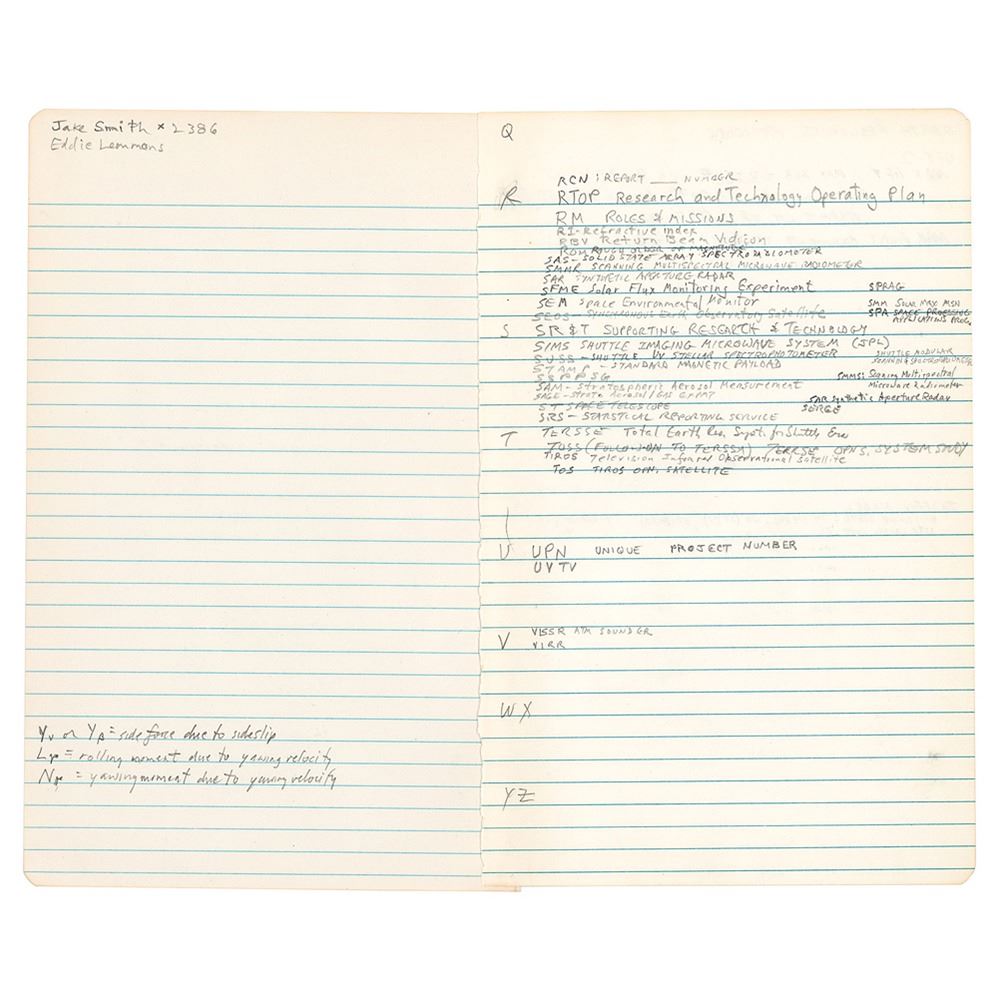 Jake Smith x 2386
Eddie Lemmons
Yv or Yβ = side force due to sideslip
Lr = rolling moment due to yawing velocity
Nr = yawing moment due to yawing velocity
Q
RCN : REPORT ___ NUMBER
R RTOP Research and Technology Operating Plan
RM ROLES & MISSIONS
RI - Refractive index
RBV Return Beam Vidicon
ROM ROUGH ORDER OF MAGNITUDE
SAS - SOLID STATE ARRAY SPECTRORADIOMETER
SMMR SCANNING MULTISPECTRAL MICROWAVE RADIOMETER
SAR SYNTHETIC APERTURE RADAR
SFME Solar Flux Monitoring Experiment SPRAG
SEM Space Environmental Monitor SMM SOLAR MAX MSN
SEOS - SYNCHRONOUS Earth Observatory Satellite SPA SPACE PROCESSING
APPLICATIONS PROG.
S SR&T SUPPORTING RESEARCH & TECHNOLOGY
SIMS SHUTTLE IMAGING MICROWAVE SYSTEM (JPL)
SUSS - SHUTTLE UV STELLAR SPECTROPHOTOMETER SHUTTLE MODULAR
STAMP - STANDARD MAGNETIC PAYLOAD SCANNING
SSPPSG SMMS: Scanning Multispectral
SAM - Stratospheric Aerosol Measurement Microwave Radiometer
SAGE - Strato Aerosol / GAS SAR Synthetic Aperture Radar
ST SPACE TELESCOPE SERGE
SRS - STATSTICAL REPORTING SERVICE
T TERSSE Total Earth Res. Syst. for Shuttle Era
TOSS (FOLLOW-ON TO TERSSA) TERRSE OPNS. SYSTEM STUDY
TIROS Television Infrared Observational Satellite
TOS TIROS OPN. SATELLITE
U UPN UNIQUE PROJECT NUMBER
UVTV
V VISSR ATM SOUNDER
VIRR
WX
YZ